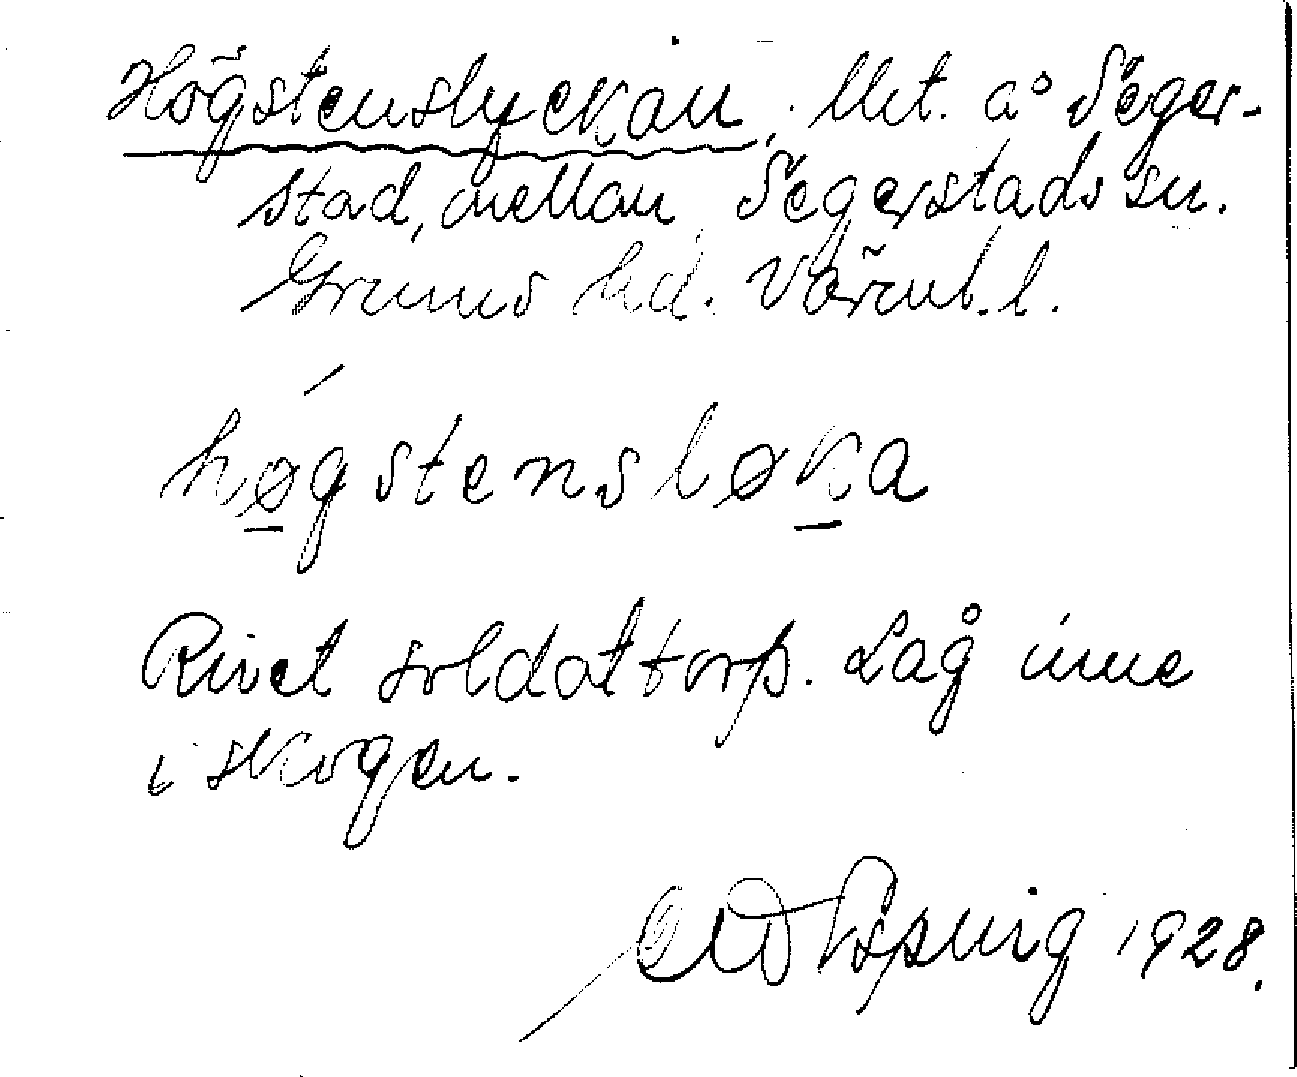 Högstenslyckan, Utt. å Seger-
stad, mellan Segerstads sn.
Grums hd. Värml. l.
høgstensløka
Rivet soldattorp. Låg inne
i skogen.
1928.